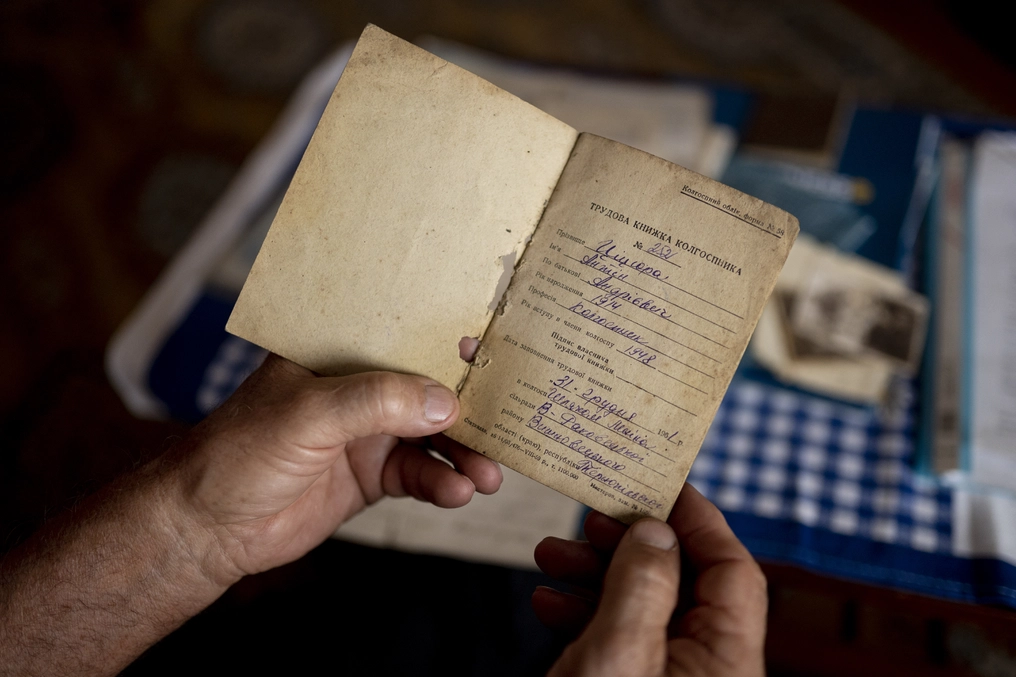 Колгоспний облік, форма № 58
ТРУДОВА КНИЖКА КОЛГОСПНИКА
№ 252
Прізвище
Ім'я
По батькові Андрійович
Рік народження 1914
Професія колгоспник
Рік вступу в члени колгоспу 1948
Підпис власника
трудової книжки
Дата заповнення трудової книжки
31 грудня 196 р.
в колгоспі Шляхом Леніна
сільради В-
району
області (краю), республіки Тернопільської